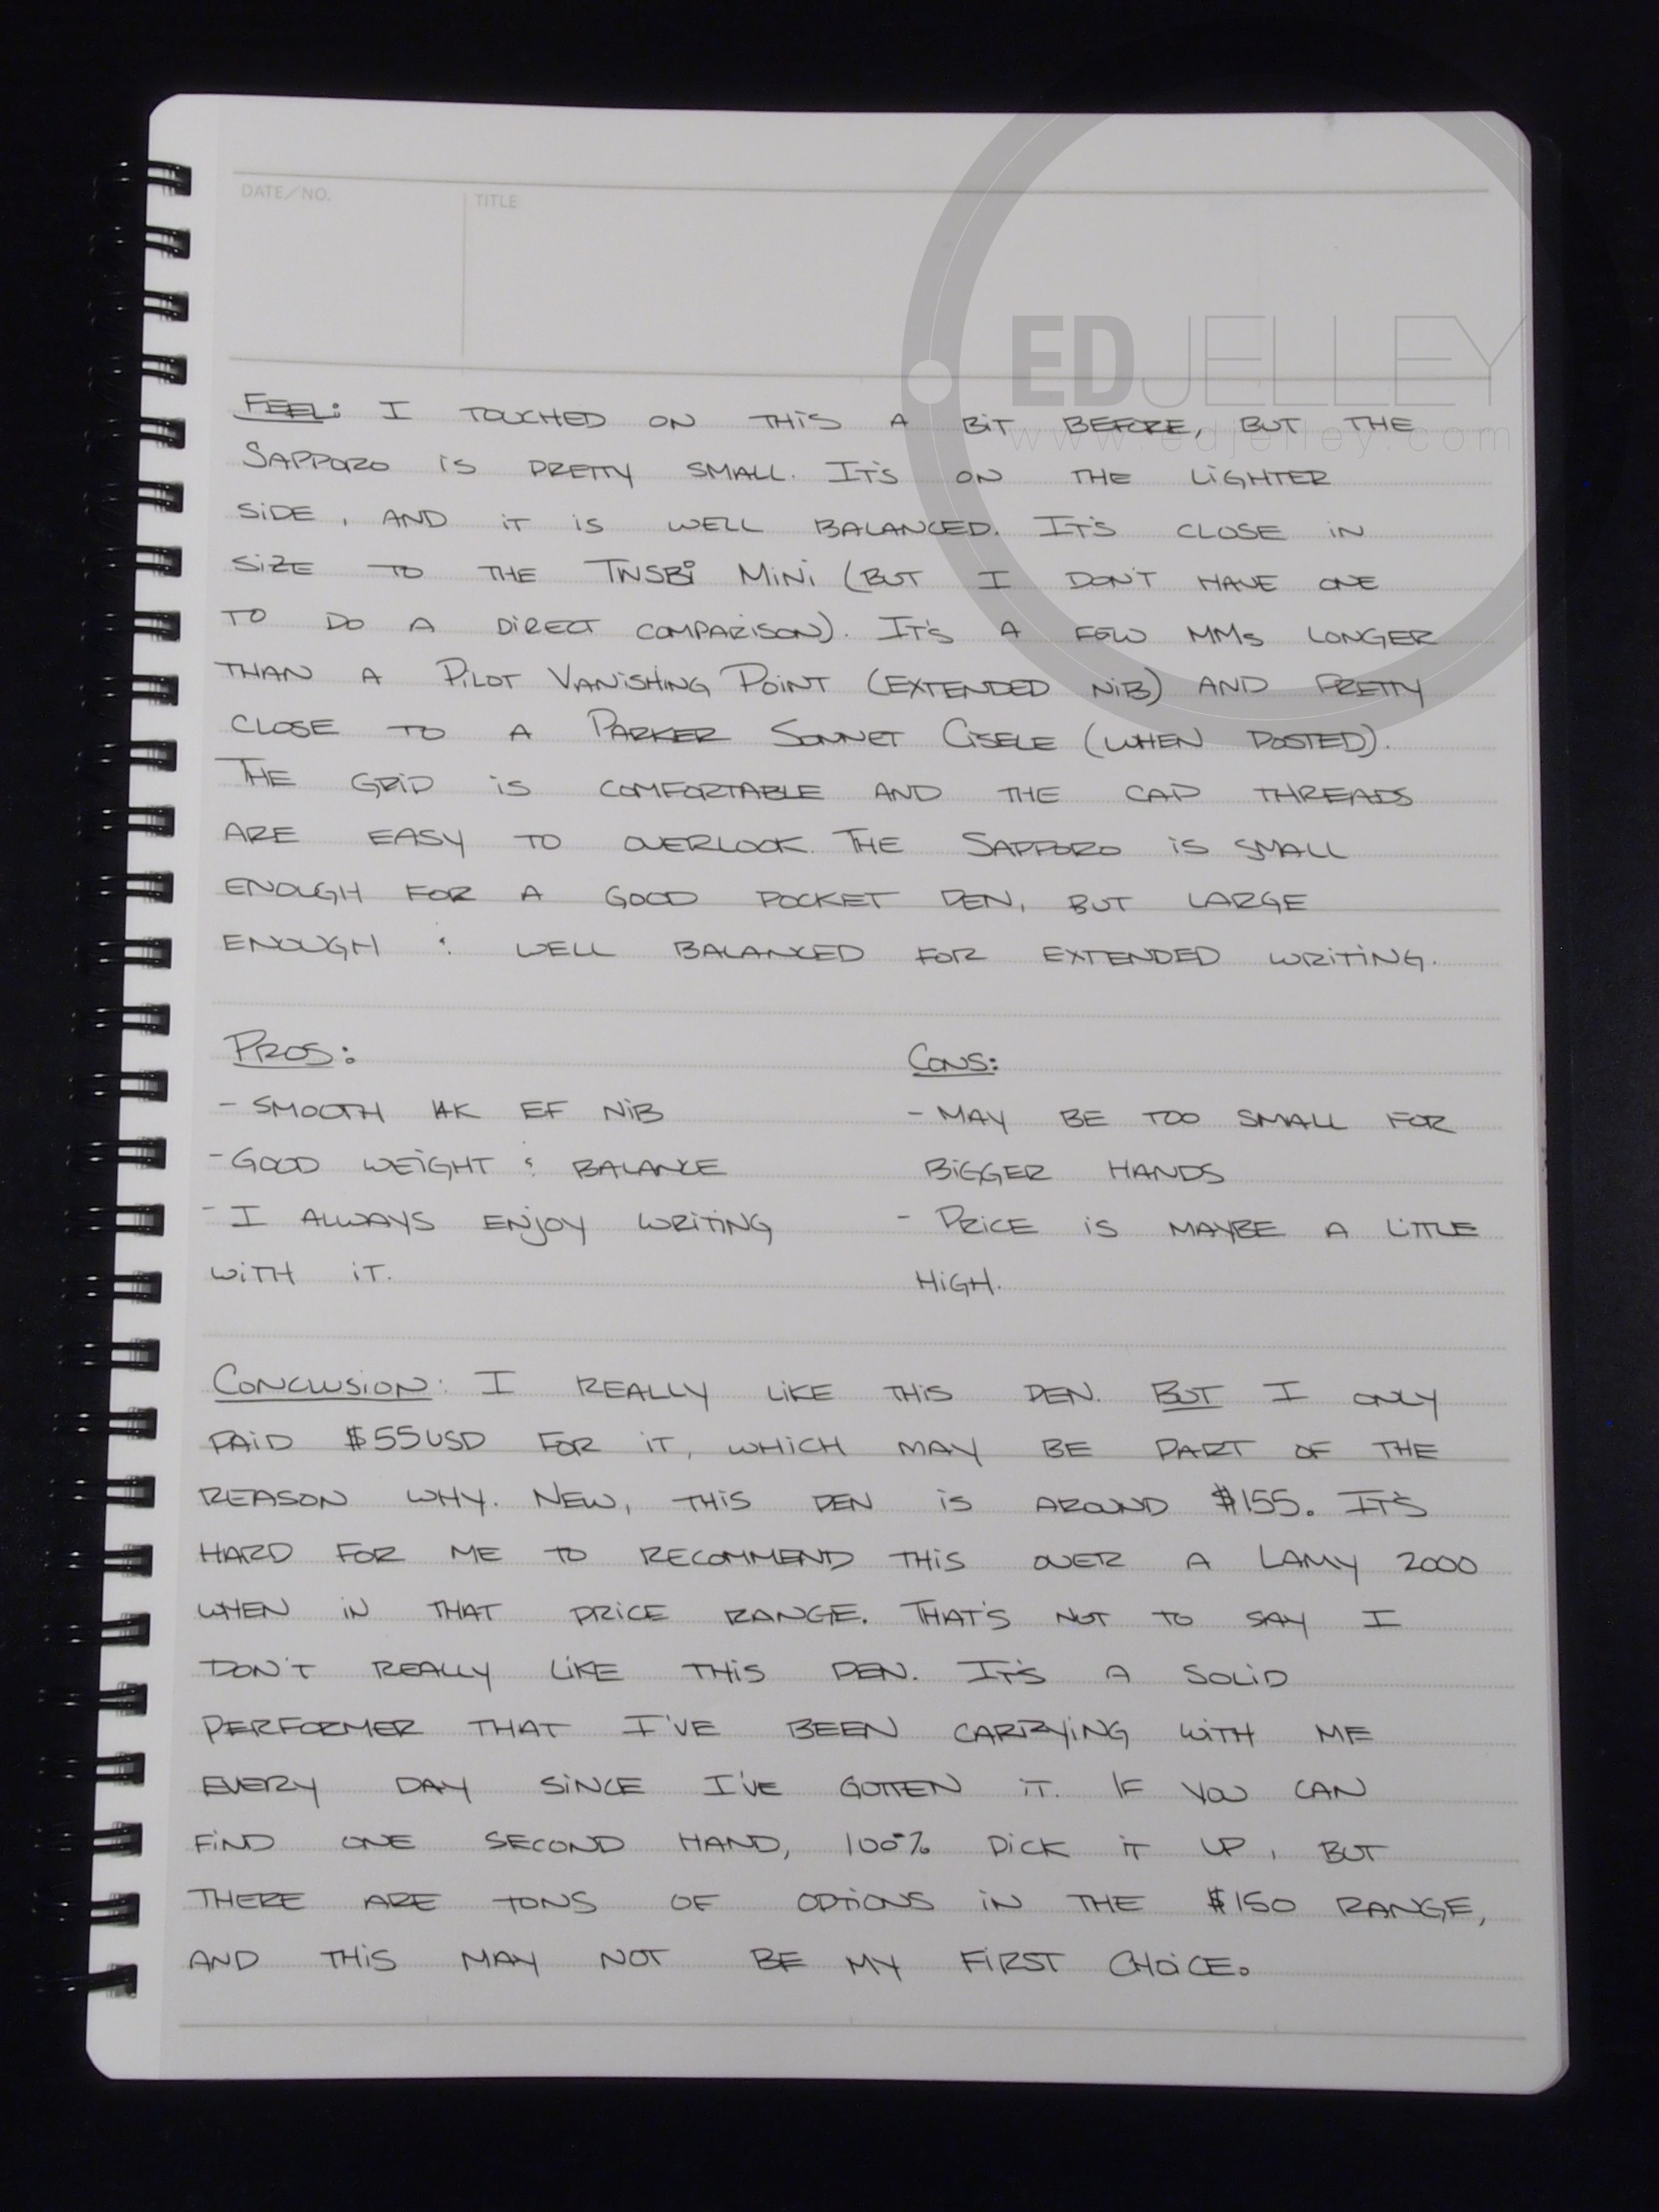 DATE/NO.
TITLE
EDJELLEY
www.edjelley.com
FEEL: I TOUCHED ON THIS A BIT BEFORE, BUT THE
SAPPORO IS PRETTY SMALL. IT'S ON THE LIGHTER
SIDE, AND IT IS WELL BALANCED. IT'S CLOSE IN
SIZE TO THE TWSBI MINI (BUT I DON'T HAVE ONE
TO DO A DIRECT COMPARISON). IT'S A FEW MMS LONGER
THAN A PILOT VANISHING POINT (EXTENDED NIB) AND PRETTY
CLOSE TO A PARKER SONNET CISELE (WHEN POSTED).
THE GRIP IS COMFORTABLE AND THE CAP THREADS
ARE EASY TO OVERLOOK. THE SAPPORO IS SMALL
ENOUGH FOR A GOOD POCKET PEN, BUT LARGE
ENOUGH & WELL BALANCED FOR EXTENDED WRITING.
PROS:
- SMOOTH 14K EF NIB
- GOOD WEIGHT & BALANCE
- I ALWAYS ENJOY WRITING
WITH IT.
CONS:
- MAY BE TOO SMALL FOR
BIGGER HANDS
- PRICE IS MAYBE A LITTLE
HIGH.
CONCLUSION: I REALLY LIKE THIS PEN. BUT I ONLY
PAID $55USD FOR IT, WHICH MAY BE PART OF THE
REASON WHY. NEW, THIS PEN IS AROUND $155. IT'S
HARD FOR ME TO RECOMMEND THIS OVER A LAMY 2000
WHEN IN THAT PRICE RANGE. THAT'S NOT TO SAY I
DON'T REALLY LIKE THIS PEN. IT'S A SOLID
PERFORMER THAT I'VE BEEN CARRYING WITH ME
EVERY DAY SINCE I'VE GOTTEN IT. IF YOU CAN
FIND ONE SECOND HAND, 100% PICK IT UP, BUT
THERE ARE TONS OF OPTIONS IN THE $150 RANGE,
AND THIS MAY NOT BE MY FIRST CHOICE.